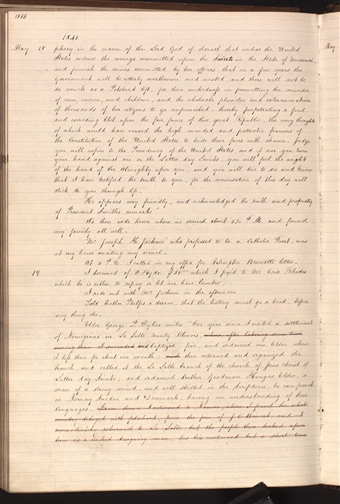 1843
1843
May 18 phecy in the name of the Lord God of Israel that unless the United
States redress the wrongs committed upon the Saints in the State of Missouri
and punish the crimes committed by her officers, that in a few years the
Government will be utterly overthrown and wasted, and there will not be
so much as a Potsherd left, for their wickedness in permitting the murder
of men, women, and children, and the wholesale plunder and extermination
of thousands of her citizens to go unpunished; thereby perpetrating a foul
and corroding blot upon the fair fame of this great Republic, the very thought
of which would have caused the high minded and patriotic framers of
the Constitution of the United States to hide their faces with shame. Judge
you will aspire to the Presidency of the United States and if ever you turn
your hand against me or the Latter day Saints, you will feel the weight
of the hand of the Almighty upon you; and you will live to see and know
that I have testified the truth to you, for the conversation of this day will
stick to you through life.
He appeared very friendly, and acknowledged the truth and propriety
of President Smith's remarks
We then rode home where we arrived about P. M. and found
my family all well.
Mr. Joseph H. Jackson who professed to be a Catholic Priest, was
at my house awaiting my arrival.
At 6 P. M. I called in my office for letter.
19 I borrowed of O. Hyde which I paid to Mr. Eric Rhodes
which he is either to repay or let me have lumber.
I rode out with Mr. Jackson in the afternoon
Told brother Phelps a dream, that the history must go ahead, before
any thing else.
Elder George P. Dykes writes "One year since I visited a settlement
of Norwegians in La Salle County Illinois,
baptized five, and ordained one Elder when
I left them for about one month, then returned and organized the
branch and called it the La Salle branch of the church of Jesus Christ of
Latter day Saints, and ordained brother Goodman Hougas, Elder, a
man of a strong mind, and well skilled in the Scriptures; he can preach
in Norway Sweden and Denmark, having an understanding of their
languages.